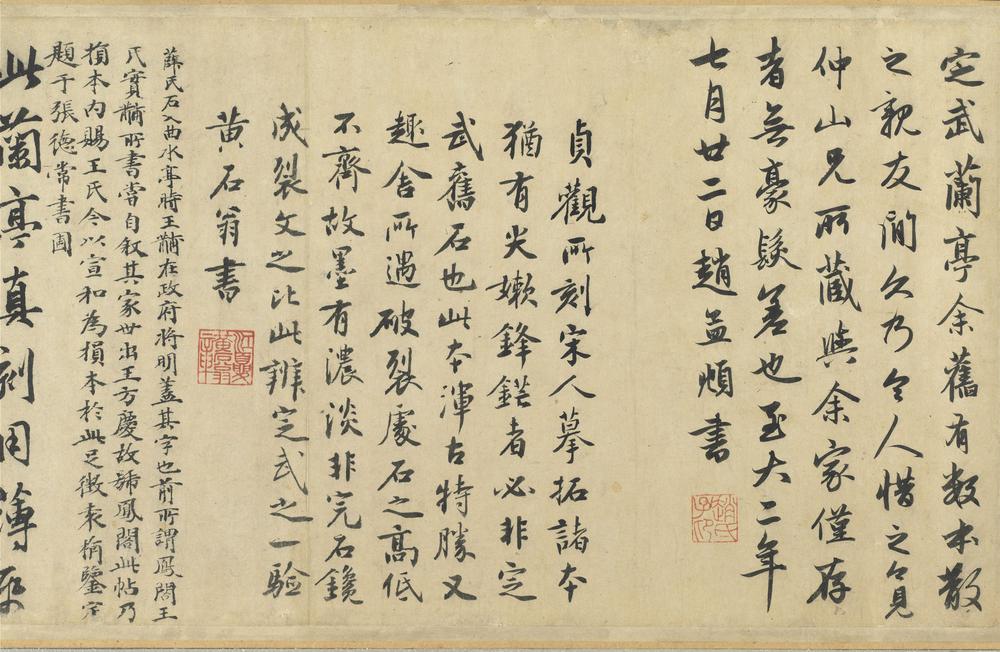 定武蘭亭余舊有數本散
之親友間久乃令人惜之今見
仲山兄所藏與余家僅存
者無豪髮差也至大二年
七月廿二日趙孟頫書
趙氏子昂
貞觀所刻宋人摹拓諸本
猶有尖嫩鋒鋩者必非定
武舊石也此本渾古特勝又
趣舍所遇破裂處石之高低
不齊故墨有濃淡非完石鑱
成裂文之比此辨定武之一驗
黃石翁書
薛氏石入曲水亭時王黼在政府將明蓋其字也前所謂鳳閣王
氏實黼所書嘗自叙其家世出王方慶故號鳳閣此帖乃
損本內賜王氏今以宣和為損本於此足徵袁桷鑒定
題于張德常書圃
此蘭亭真刻用薄